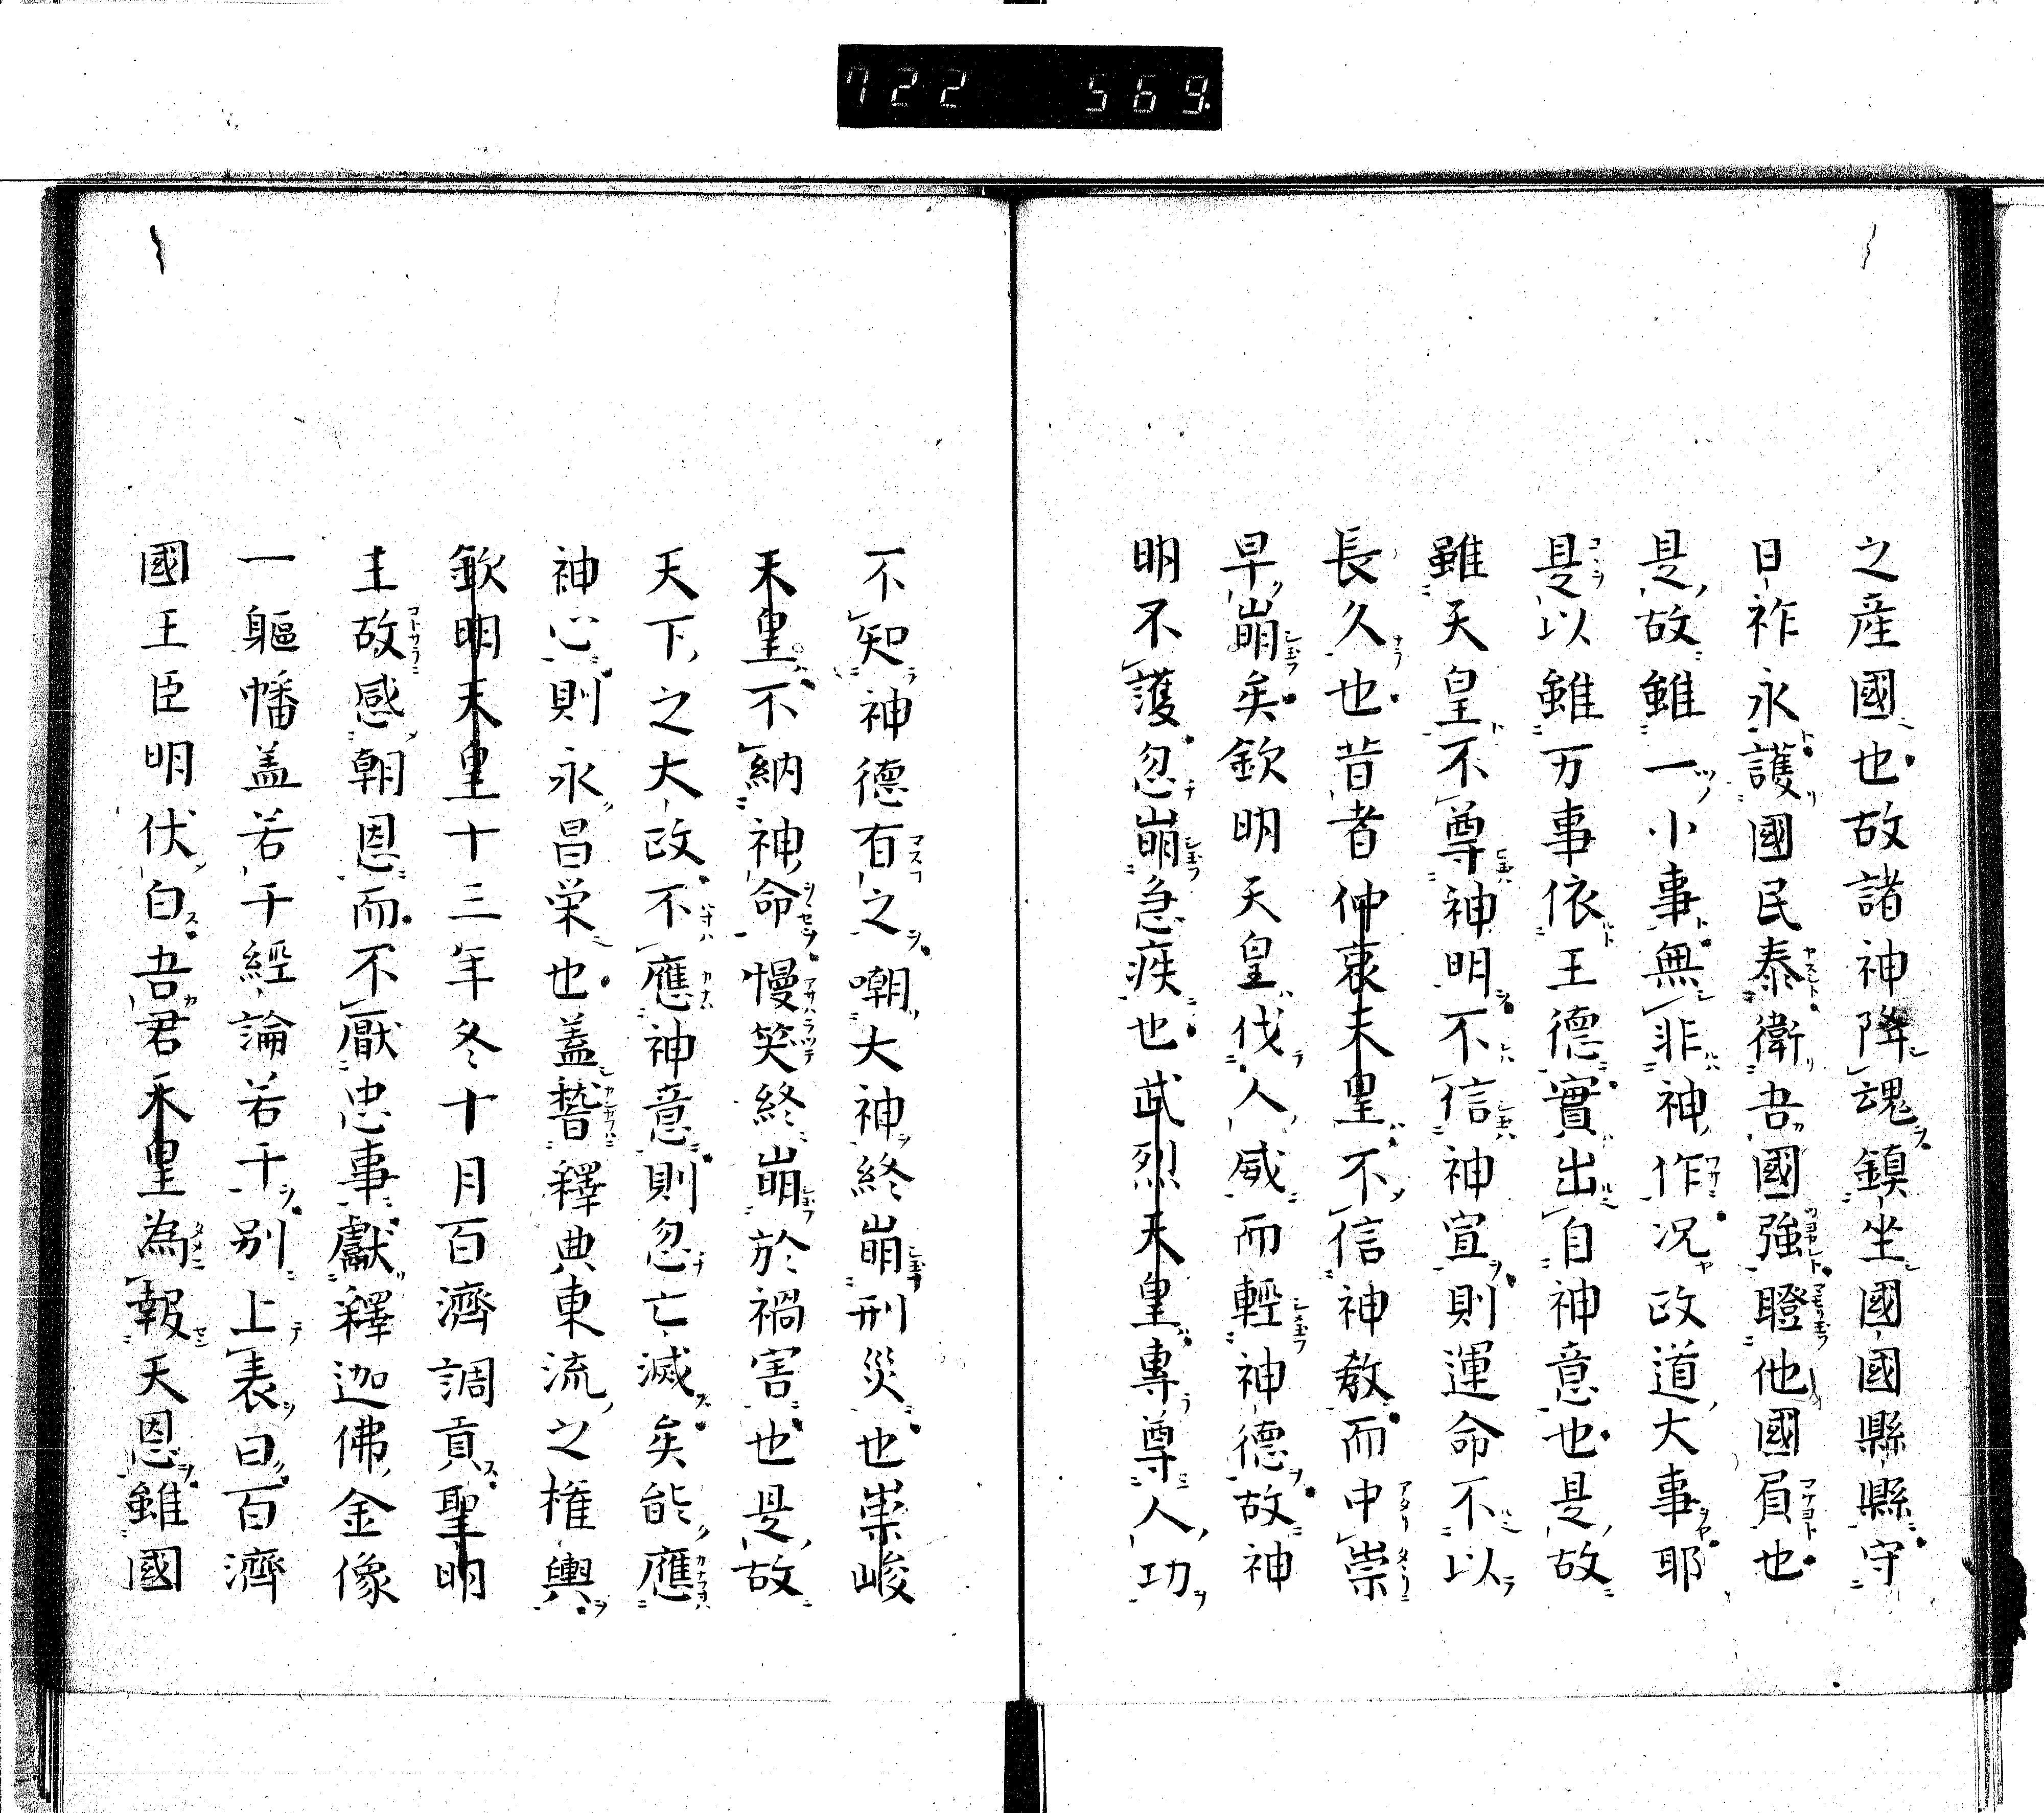 722 569.
之産國也故諸神降魂鎮坐國國縣縣守
日祚永護國民泰衛吾國強瞪他國負也
是故雖一小事無非神作况政道大事耶
是以雖万事依王德實出自神意也是故
雖天皇不尊神明不信神宣則運命不以
長久也昔者仲哀天皇不信神教而中崇
早崩矣欽明天皇伐人威而輕神德故神
明不護忽崩急疾也武烈天皇專尊人功
不知神德有之嘲大神終崩刑災也崇峻
天皇不納神命慢笑終崩於禍害也是故
天下之大政不應神意則忽亡滅矣能應
神心則永昌栄也盖暓釋典東流之権輿
欽明天皇十三年冬十月百濟調貢聖明
王故感朝恩而不厭忠事獻釋迦佛金像
一軀幡盖若干經論若干别上表曰百濟
國王臣明伏白吾君天皇為報天恩雖國